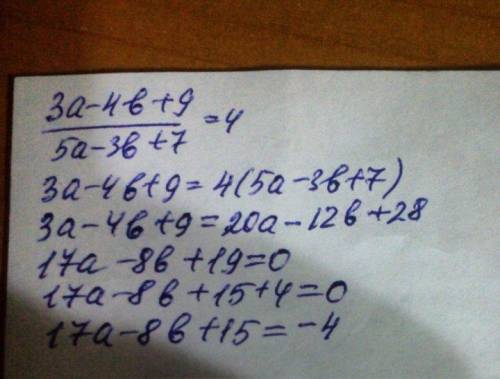 3a-4в+9
5a-3в+7 =4
3a-4в+9=4(5a-3в+7)
3a-4в+9=20a-12в+28
17a-8в+19=0
17a-8в+15+4=0
17a-8в+15=-4